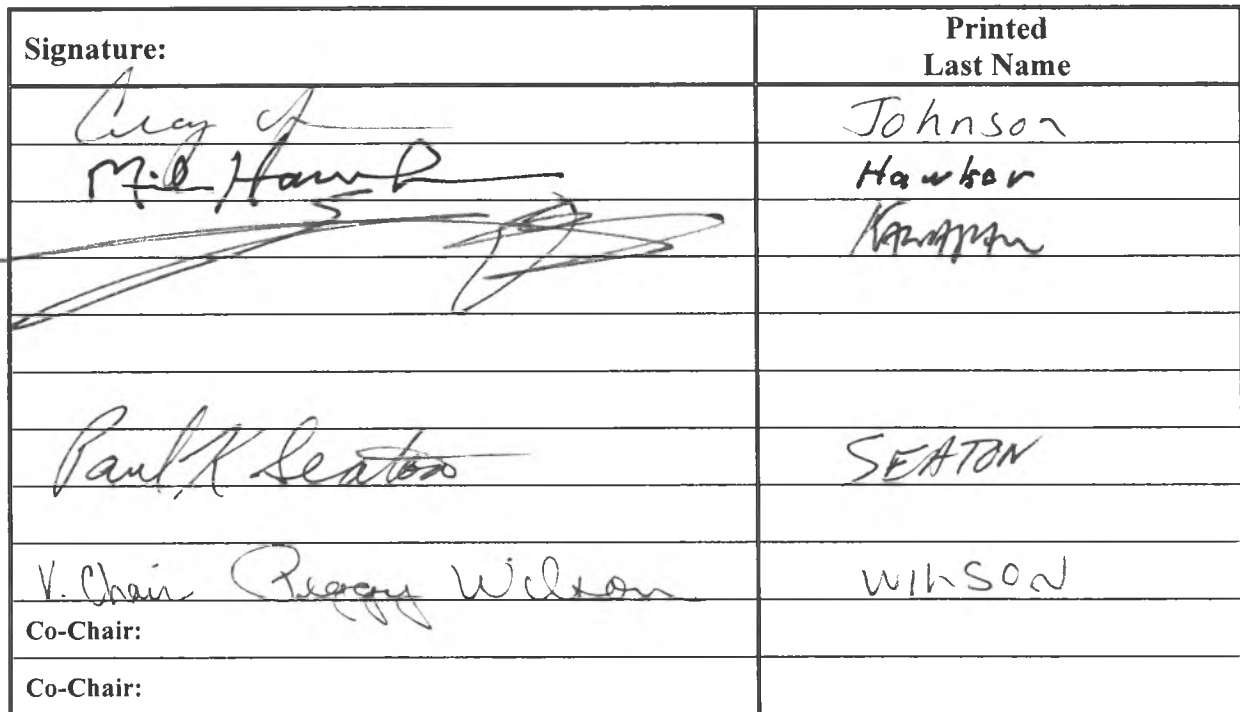 Signature: Printed
Last Name
Johnson
Mik Hawk Hawker
Paul K Seaton SEATON
V. Chair Peggy Wilson WILSON
Co-Chair:
Co-Chair: